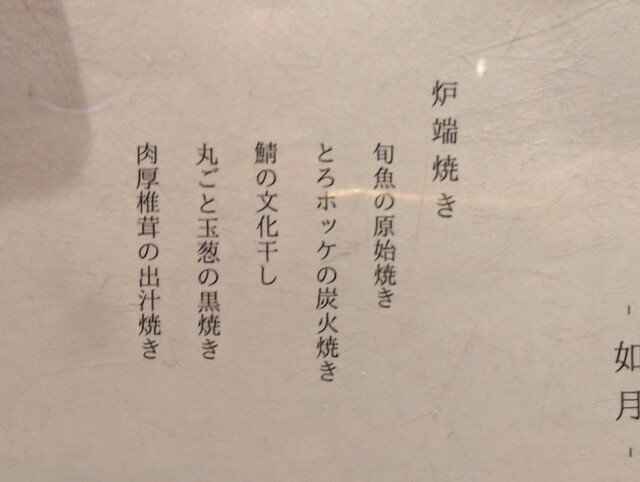 - 如月 -
炉端焼き
旬魚の原始焼き
とろホッケの炭火焼き
鯖の文化干し
丸ごと玉葱の黒焼き
肉厚椎茸の出汁焼き